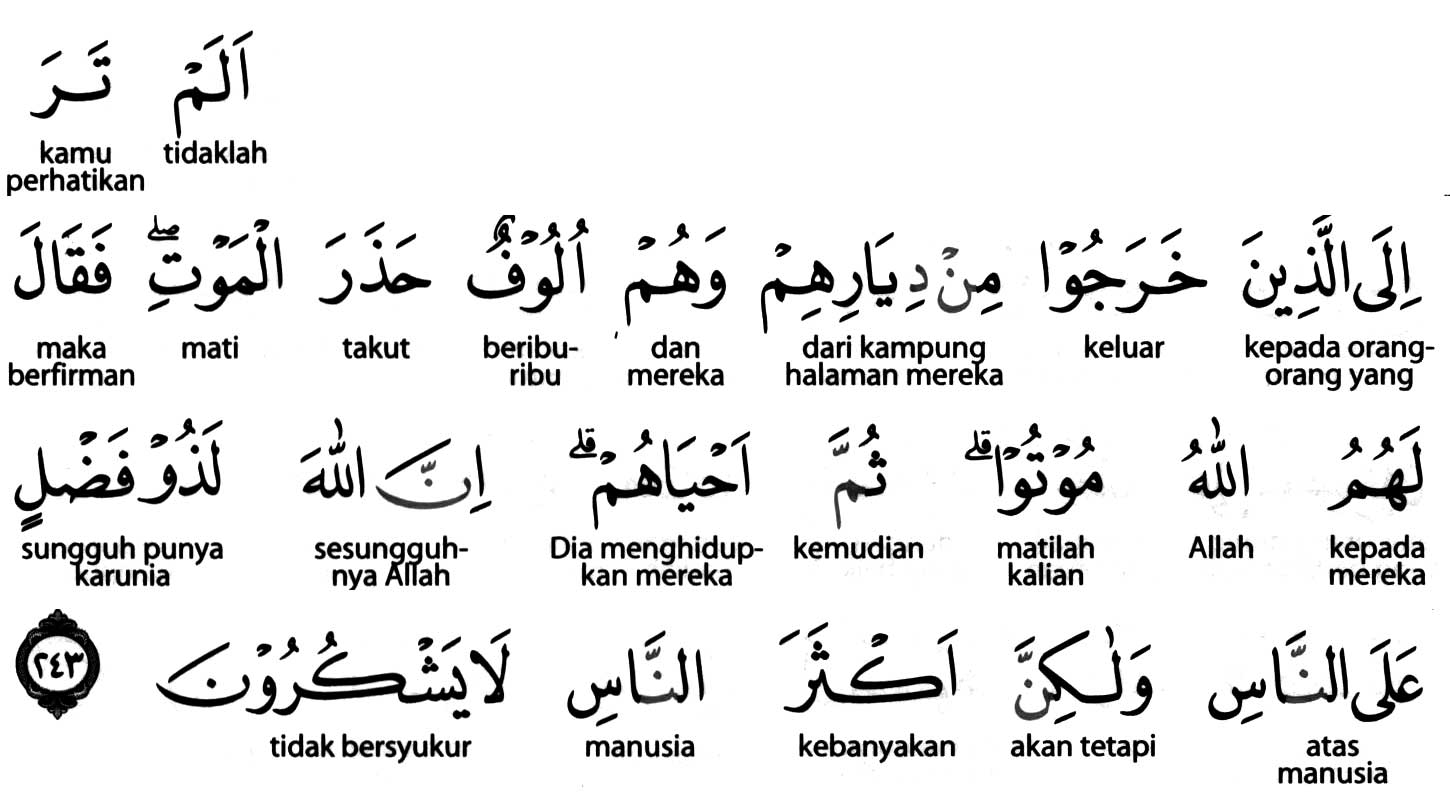 اَلَمْ تَرَ
tidaklah kamu perhatikan
اِلَى الَّذِينَ خَرَجُوْا مِنْ دِيَارِهِمْ وَهُمْ اُلُوْفٌ حَذَرَ الْمَوْتِۖ فَقَالَ
kepada orang-orang yang keluar dari kampung halaman mereka dan mereka beribu-ribu takut mati maka berfirman
لَهُمُ اللّٰهُ مُوْتُوْاۗ ثُمَّ اَحْيَاهُمْۗ اِنَّ اللّٰهَ لَذُوْ فَضْلٍ
kepada mereka Allah matilah kalian kemudian Dia menghidup-kan mereka sesungguh-nya Allah sungguh punya karunia
عَلَى النَّاسِ وَلٰكِنَّ اَكْثَرَ النَّاسِ لَا يَشْكُرُوْنَ ٢٤٣
atas manusia akan tetapi kebanyakan manusia tidak bersyukur